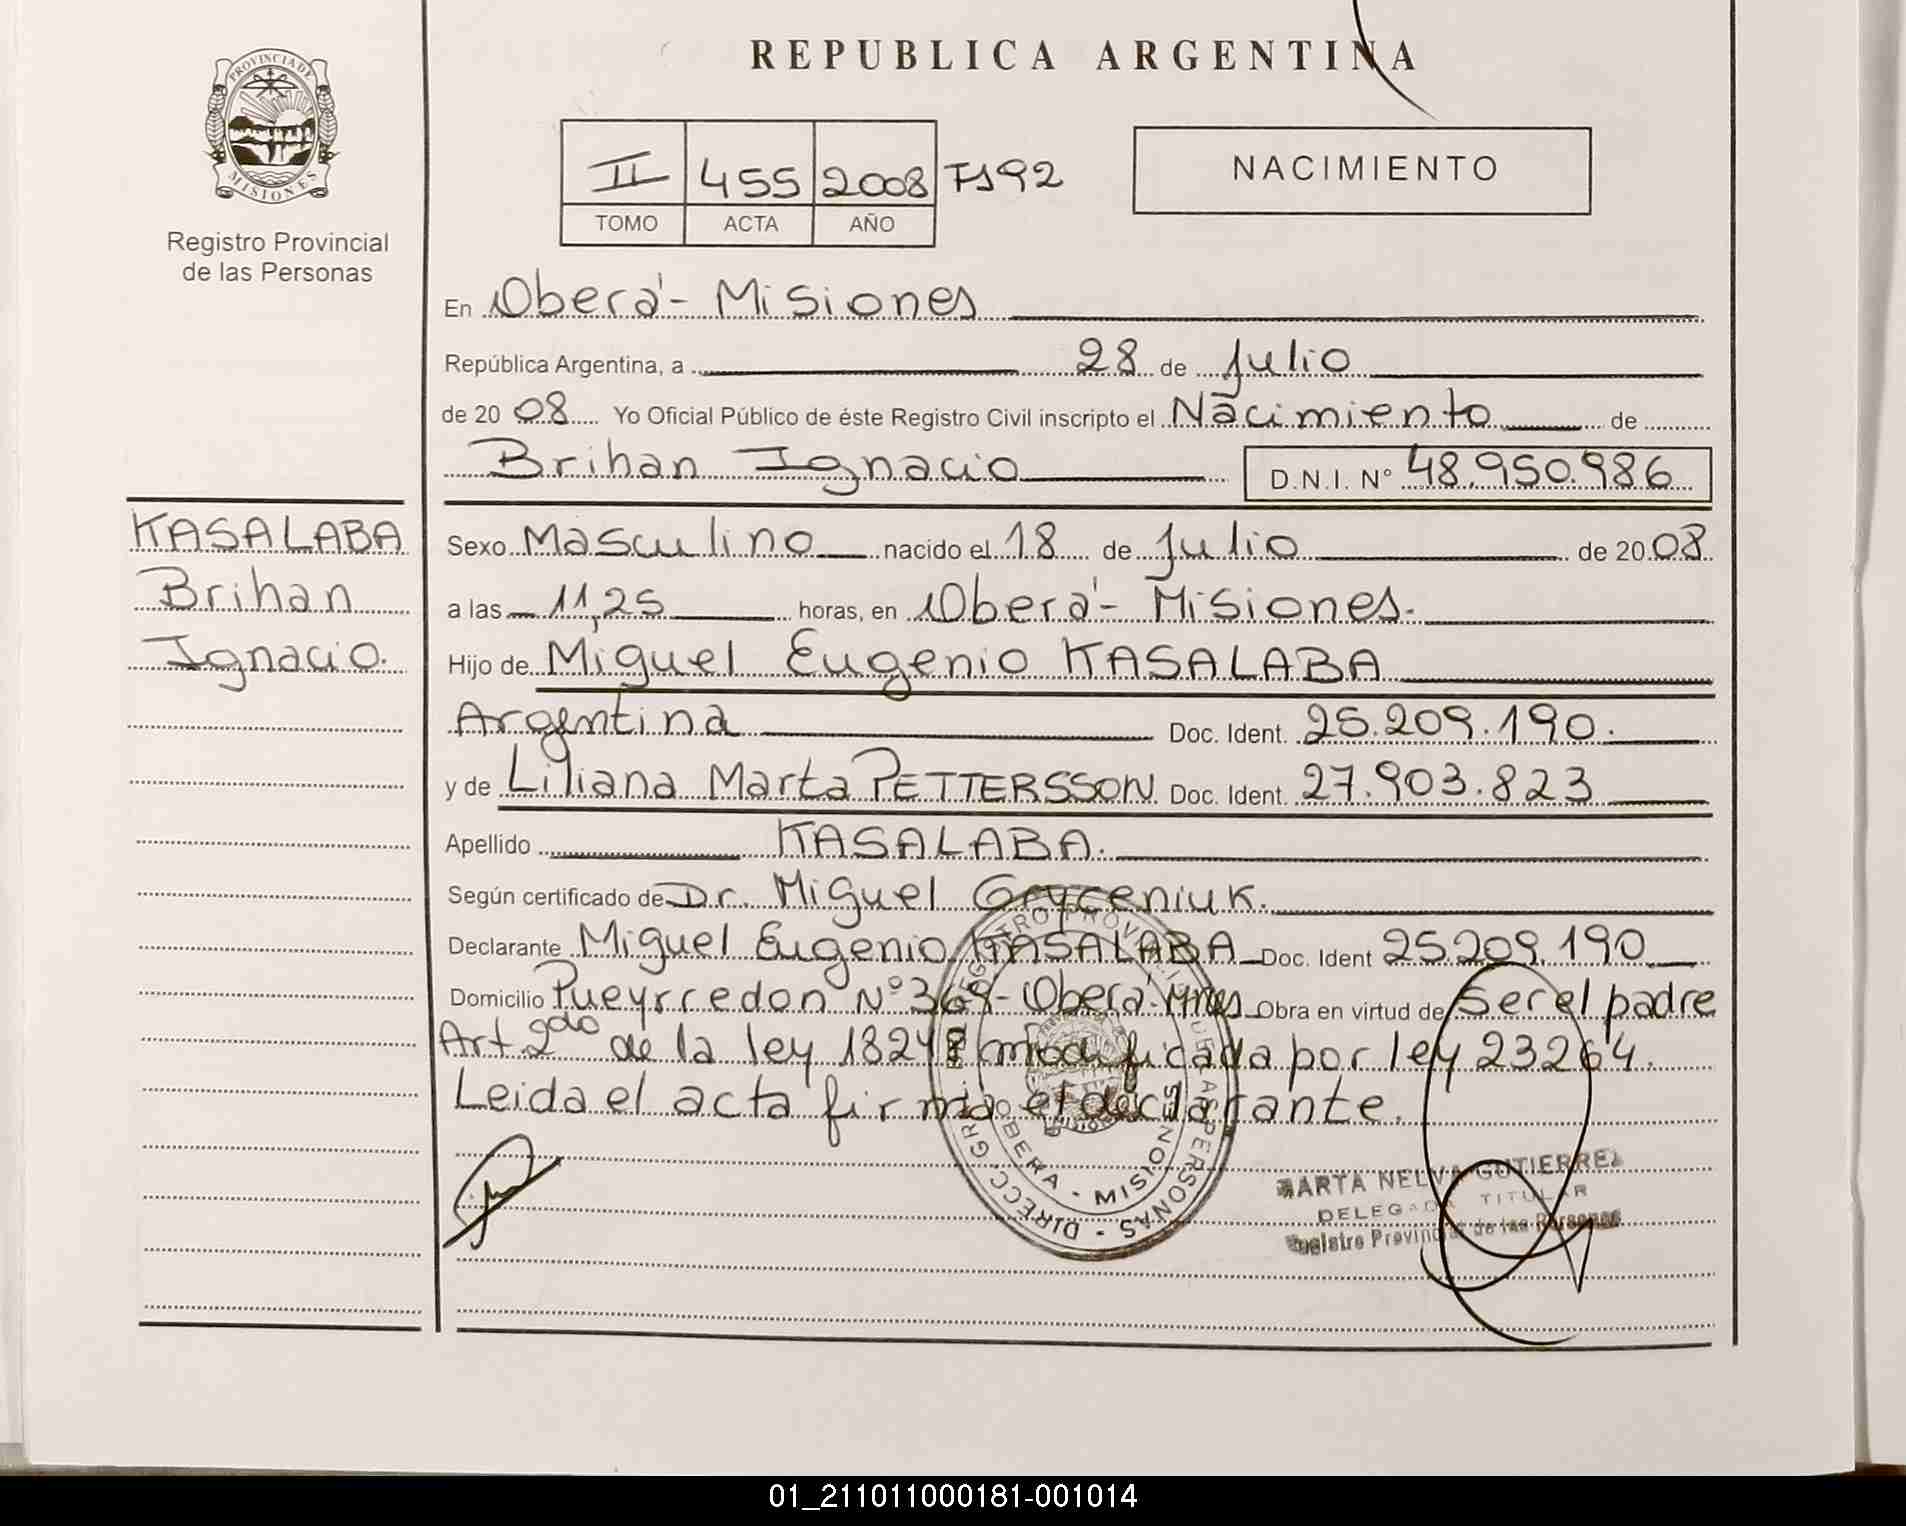 REPUBLICA ARGENTINA
PROVINCIA DE
MISIONES
Registro Provincial
de las Personas
II 455 2008 Fs 92
TOMO ACTA AÑO
NACIMIENTO
En Oberá - Misiones
República Argentina, a 28 de Julio
de 20 08 Yo Oficial Público de éste Registro Civil inscripto el Nacimiento de
Brihan Ignacio D.N.I. N° 48.950.986
KASALABA
Brihan
Ignacio.
Sexo Masculino nacido el 18 de Julio de 20 08
a las 11,25 horas, en Oberá - Misiones.
Hijo de Miguel Eugenio KASALABA
Argentina Doc. Ident. 25.209.190.
y de Liliana Marta PETTERSSON Doc. Ident. 27.903.823
Apellido KASALABA.
Según certificado de Dr. Miguel Gryceniuk.
Declarante Miguel Eugenio KASALABA Doc. Ident 25.209.190
Domicilio Pueyrredon N° 369 - Oberá - Mnes Obra en virtud de Ser el padre
Art. 2do de la ley 18248 modificada por ley 23264.
Leida el acta firma el declarante.
OBERA - MISIONES
MARTA NELVA GUTIERREZ
DELEGADA TITULAR
Registro Provincial de las Personas
01_211011000181-001014